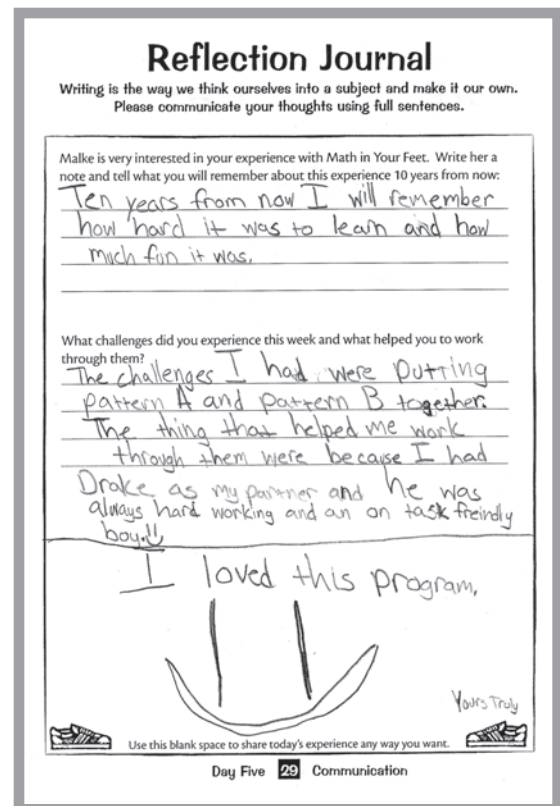 Reflection Journal
Writing is the way we think ourselves into a subject and make it our own.
Please communicate your thoughts using full sentences.
Malke is very interested in your experience with Math in Your Feet. Write her a
note and tell what you will remember about this experience 10 years from now:
Ten years from now I will remember
how hard it was to learn and how
much fun it was.
What challenges did you experience this week and what helped you to work
through them?
The challenges I had were putting
pattern A and pattern B together.
The thing that helped me work
through them were because I had
Drake as my partner and he was
always hard working and an on task freindly
boy.
I loved this program.
Yours Truly
Use this blank space to share today's experience any way you want.
Day Five 29 Communication